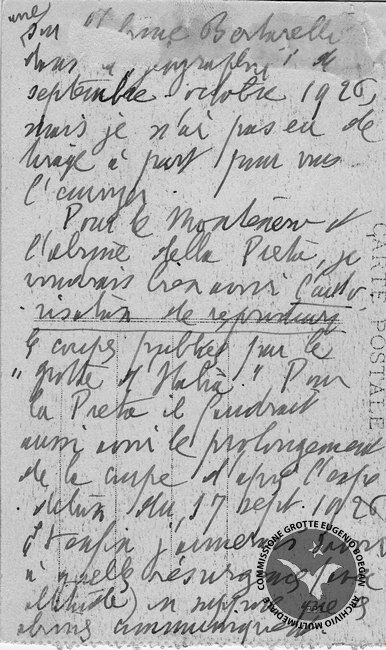 une
sur l'abime Bertarelli
dans la géographie de
septembre octobre 1926,
mais je n'ai pas eu de
tirage à part pour vous
l'envoyer.
Pour le Montenero et
l'abime della Pietà, je
voudrais bien avoir l'auto
risation de reproduire
la coupe publiée par le
"grotte d'Italia" Pour
la Pieta il faudrait
aussi avoir le prolongement
de la coupe d'après l'expé
dition du 17 sept. 1926
Enfin j'aimerais savoir
à quelle résurgence
altitude) on suppose que
abimes communiquent
CARTE POSTALE
COMMISSIONE GROTTE EUGENIO BOEGAN
ARCHIVIO MULTIMEDIALE